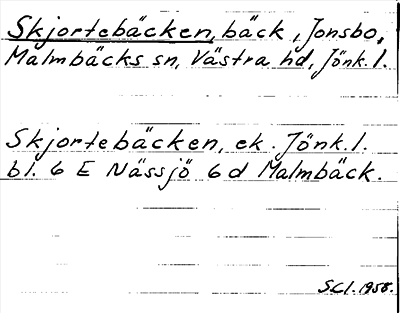 Skjortebäcken, bäck, Jonsbo,
Malmbäcks sn, Västra hd, Jönk. l.
Skjortebäcken, ek. Jönk. l.
bl. 6 E Nässjö 6 d Malmbäck.
SCl. 1958.